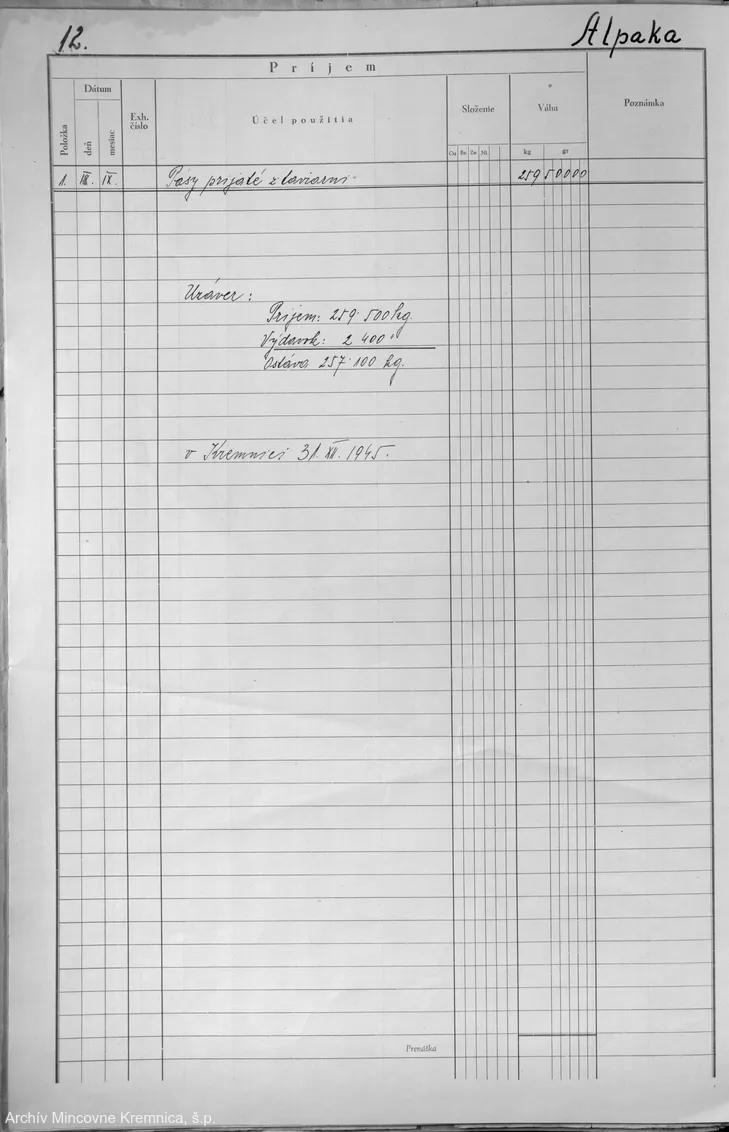 12.
Alpaka
Príjem
Položka
Dátum
deň
mesiac
Exh. číslo
Účel použitia
Složenie
Cu Sn Zn Ni
Váha
kg gr
Poznámka
1. III. IX. Pásy prijaté z taviarni 259 50000
Uzáver:
Prijem: 259·500 kg.
Výdavok: 2 400 "
Ostáva 257·100 kg.
v Kremnici 31. XII. 1945.
Prenáška
Archív Mincovne Kremnica, š.p.